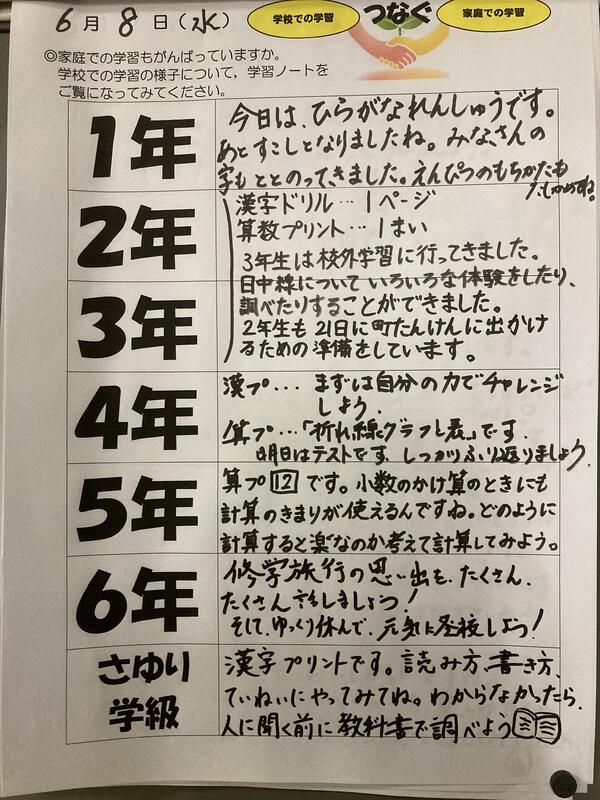 6月8日(水)
学校での学習
つなぐ
家庭での学習
◎家庭での学習もがんばっていますか。
学校での学習の様子について,学習ノートを
ご覧になってみてください。
1年
今日は、ひらがなれんしゅうです。
あとすこしとなりましたね。みなさんの
字もととのってきました。えんぴつのもちかたも
たしかめてね。
2年
3年
漢字ドリル…1ページ
算数プリント…1まい
3年生は校外学習に行ってきました。
日中線についていろいろな体験をしたり、
調べたりすることができました。
2年生も21日に町たんけんに出かけ
るための準備をしています。
4年
漢プ… まずは自分の力でチャレンジ
しよう.
算プ…「折れ線グラフと表」です.
明日はテストです。しっかりふり返りましょう.
5年
算プ12です。小数のかけ算のときにも
計算のきまりが使えるんですね。どのように
計算すると楽なのか考えて計算してみよう。
6年
修学旅行の思い出を、たくさん、
たくさん話しましょう!
そして、ゆっくり休んで、元気に登校しよう!
さゆり
学級
漢字プリントです。読み方、書き方、
ていねいにやってみてね。わからなかったら、
人に聞く前に教科書で調べよう